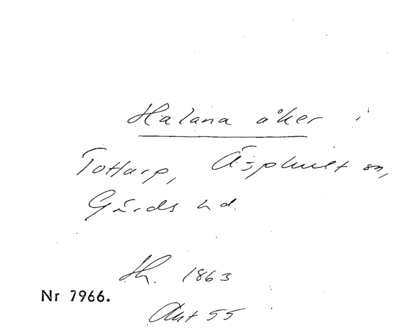 Halana åker i
Tottarp, Äsphult sn,
Gärds hd.
Sh. 1863
Nr 7966.
Akt 55